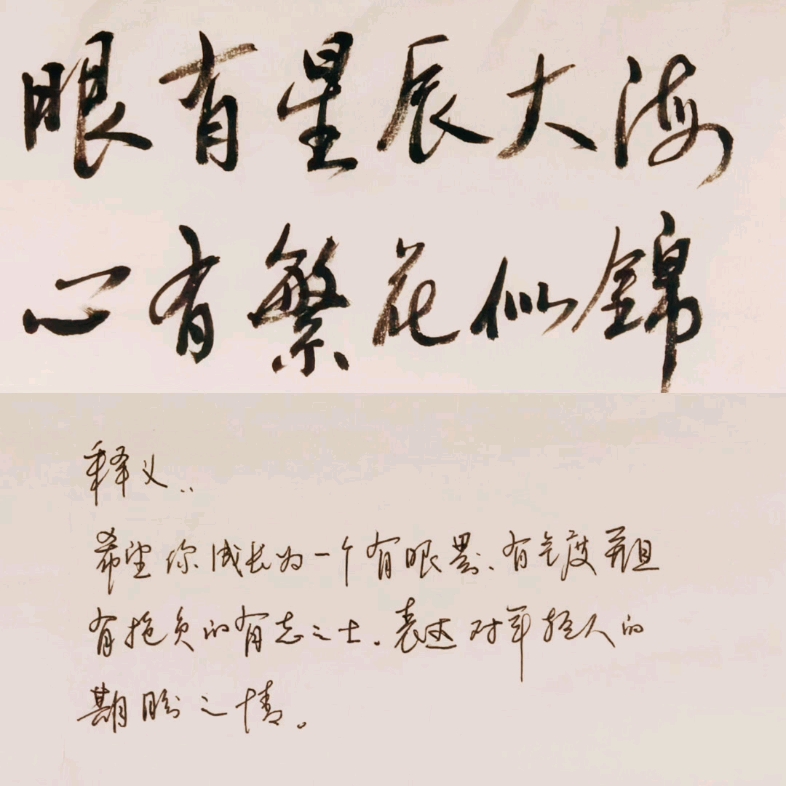 眼有星辰大海
心有繁花似锦
释义：
希望你成长为一个有眼界、有气度并且
有抱负的有志之士。表达对年轻人的
期盼之情。